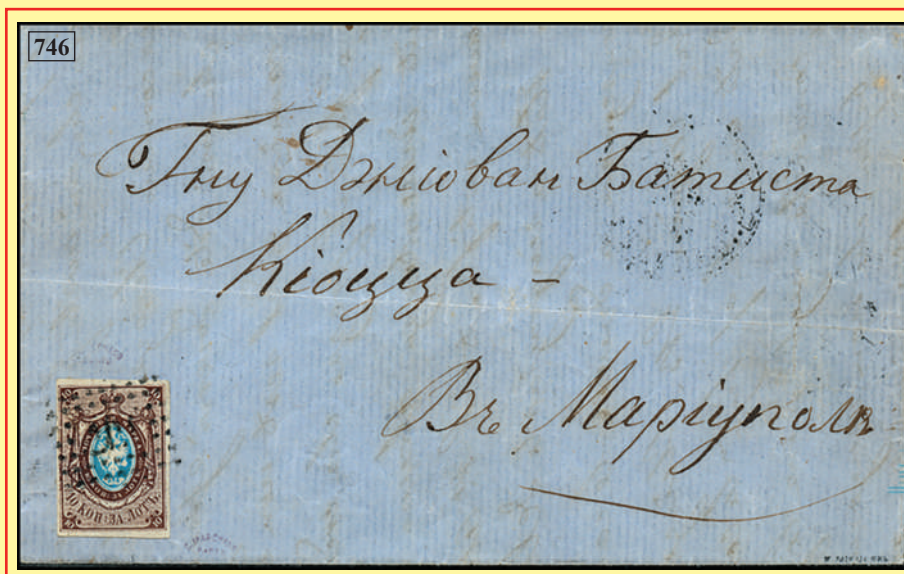 746
Гну Джіован Батиста
Кіоцца -
Въ Маріуполь
10 КОП: ЗА ЛОТЪ.